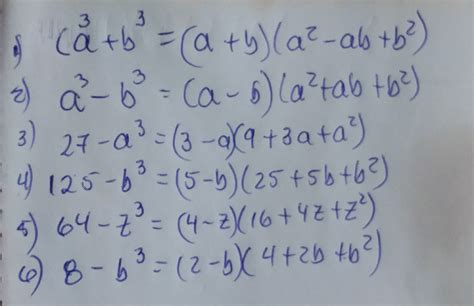 1) (a³ + b³ = (a + b)(a² - ab + b²)
2) a³ - b³ = (a - b)(a² + ab + b²)
3) 27 - a³ = (3 - a)(9 + 3a + a²)
4) 125 - b³ = (5 - b)(25 + 5b + b²)
5) 64 - z³ = (4 - z)(16 + 4z + z²)
6) 8 - b³ = (2 - b)(4 + 2b + b²)